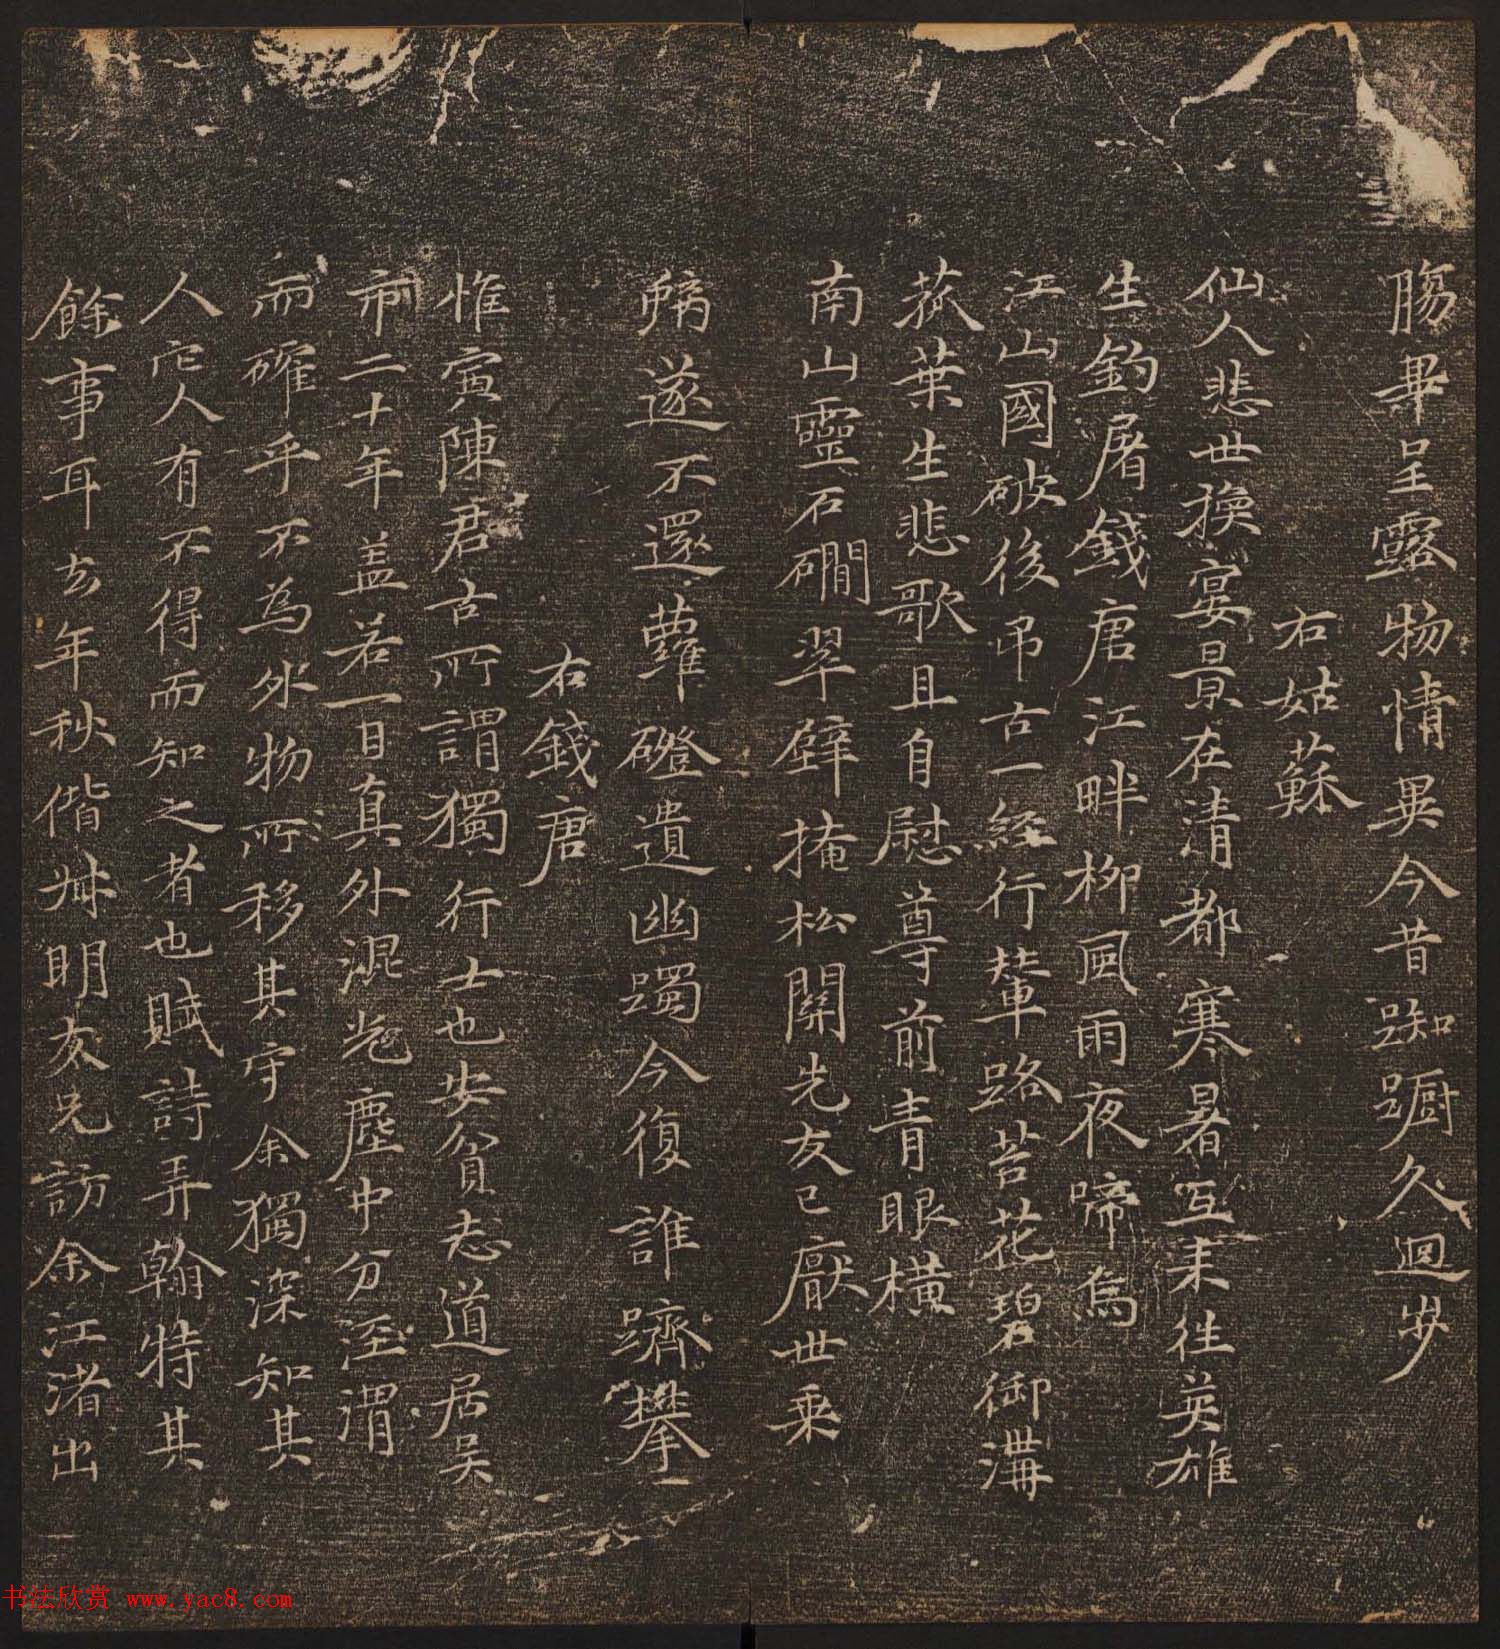 腸畢呈露物情異今昔踟躕久迴步
右姑蘇
仙人悲世換宴景在清都寒暑互来往英雄
生釣屠錢唐江畔柳風雨夜啼烏
江山國破後吊古一經行輦路苔花碧御溝
菰葉生悲歌且自慰尊前青眼橫
南山靈石磵翠壁掩松關先友已厭世乗
鸞遂不還蘿磴遺幽躅今復誰躋攀
右錢唐
惟寅陳君古所謂獨行士也安貧志道居吴
市二十年盖若一日真外混光塵中分涇渭
而確乎不為外物所移其守余獨深知其
人它人有不得而知之者也賦詩弄翰特其
餘事耳去年秋偕叔明友兄訪余江渚出
书法欣赏 www.yac8.com